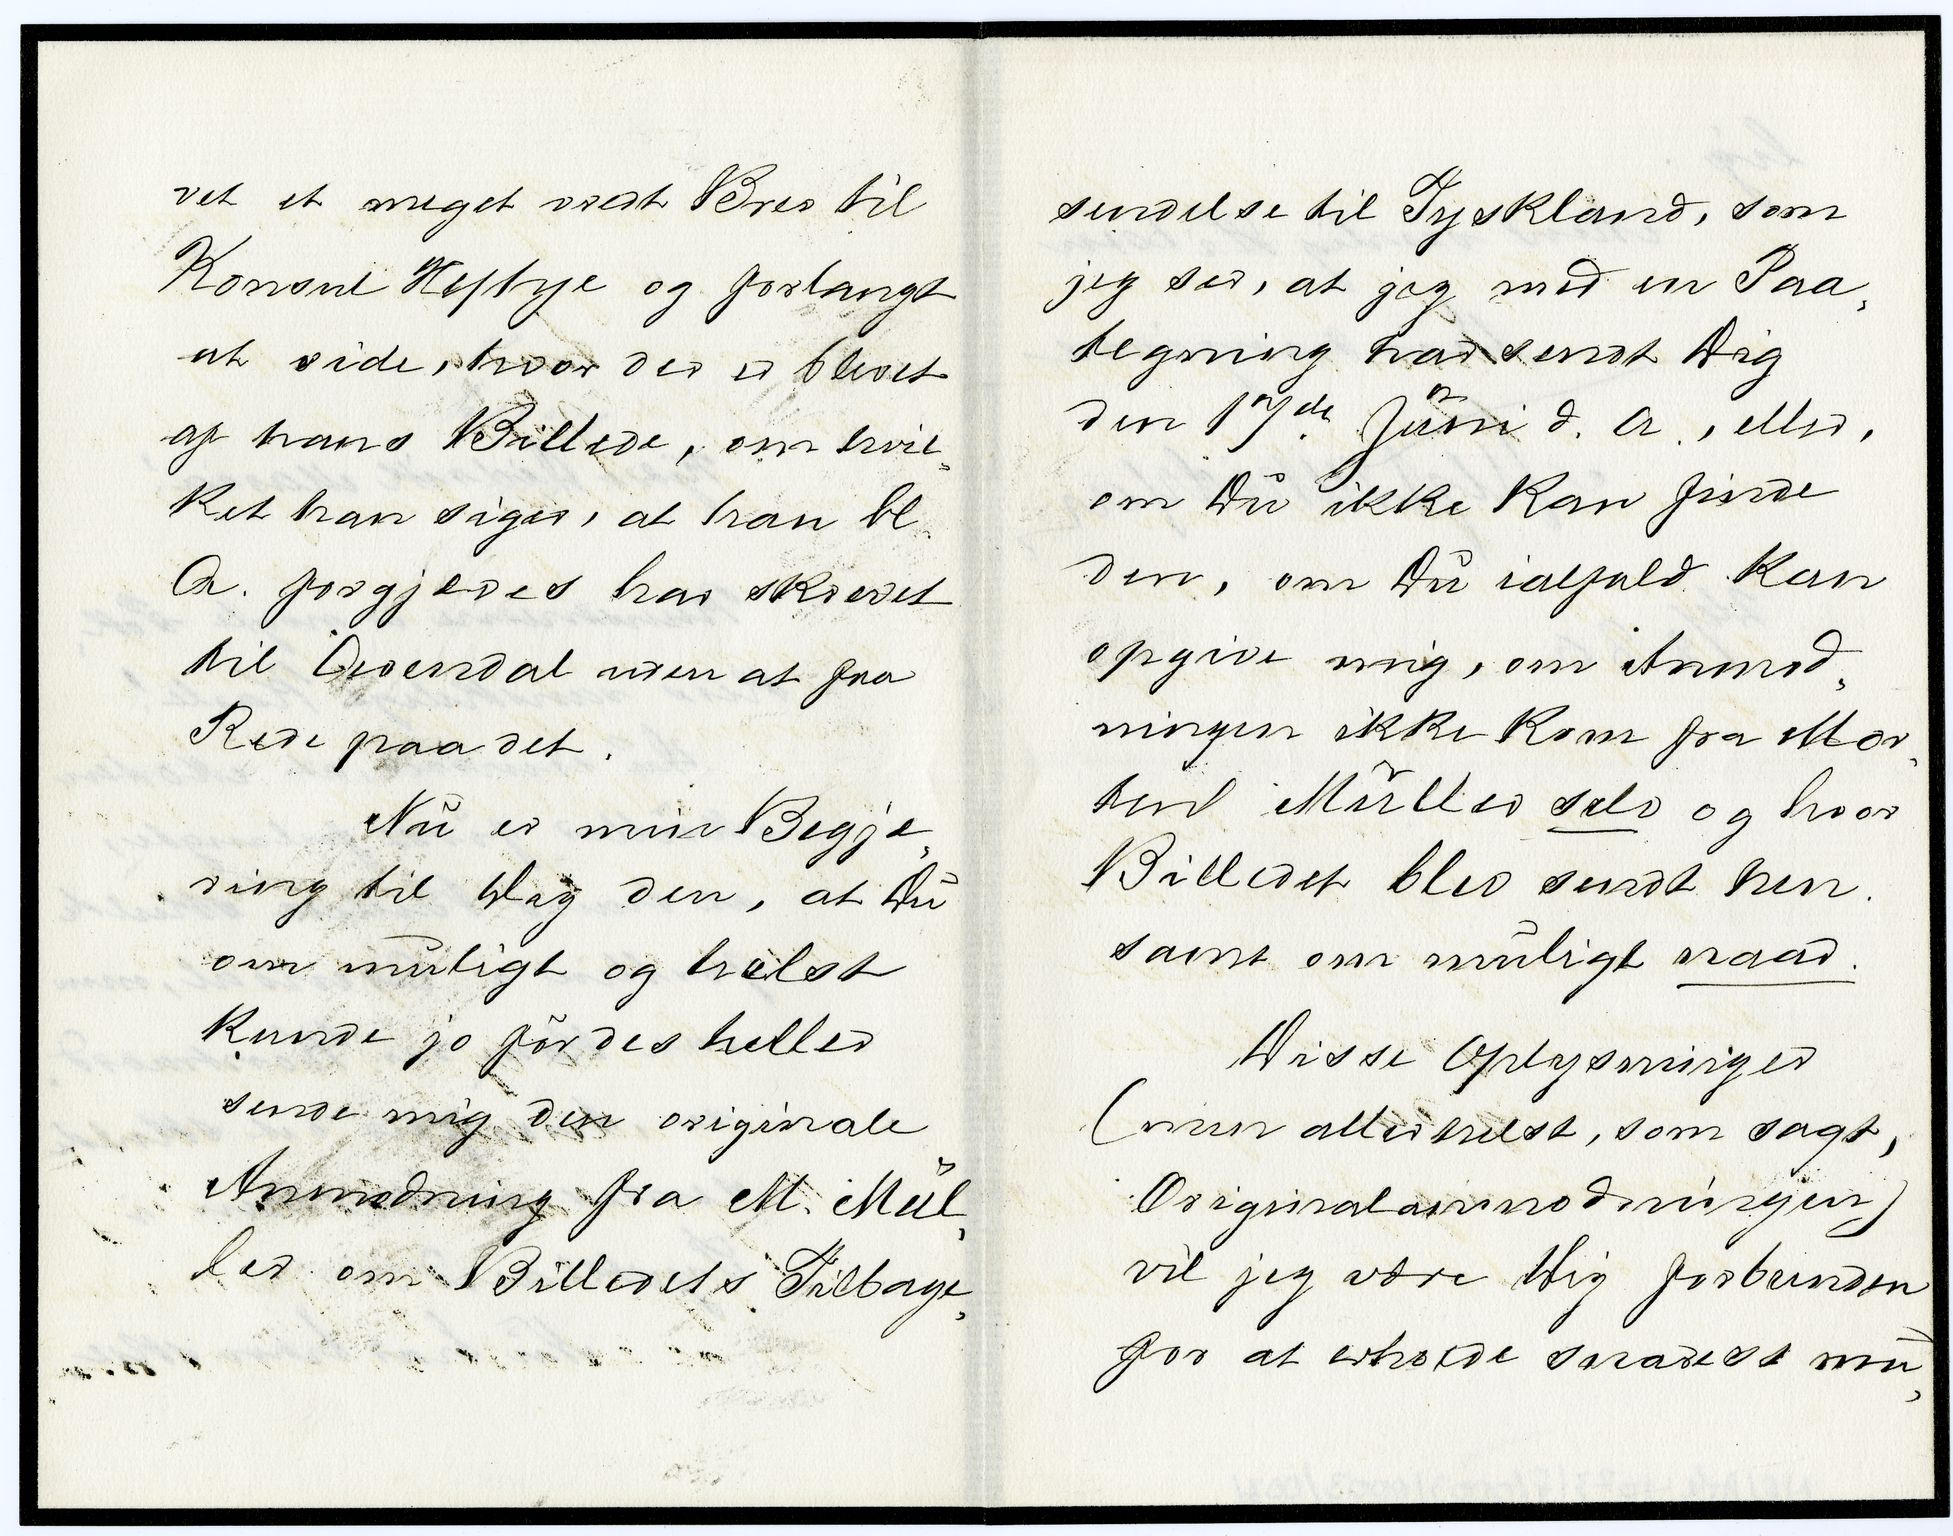 vet et meget vredt Brev til
Konsul Heftye og forlangt
at vide, hvor der er blevet
af hans Billede, om hvil„
ket han siger, at han bl.
A. forgjæves har skrevet
til Qvendal uden at faa
Rede paa det.
Nu er min Begjæ„
ring til Dig den, at Du
om muligt og helst
kunde jo før des heller
sende mig den originale
Anmodning fra M. Mül„
ler om Billedets Tilbage„
sendelse til Tyskland, som
jeg ser, at jeg med en Paa„
tegning har sendt Dig
den 17de Juni d. A., eller,
om Du ikke kan finde
den, om Du ialfald kan
opgive mig, om Anmod„
ningen ikke kom fra Mor„
ten Müller selv og hvor
Billedet blev sendt hen.
samt om muligt naar.
Disse Oplysninger
(men allerhelst, som sagt,
Originalanmodningen)
vil jeg være Dig forbunden
for at erholde snarest mu„